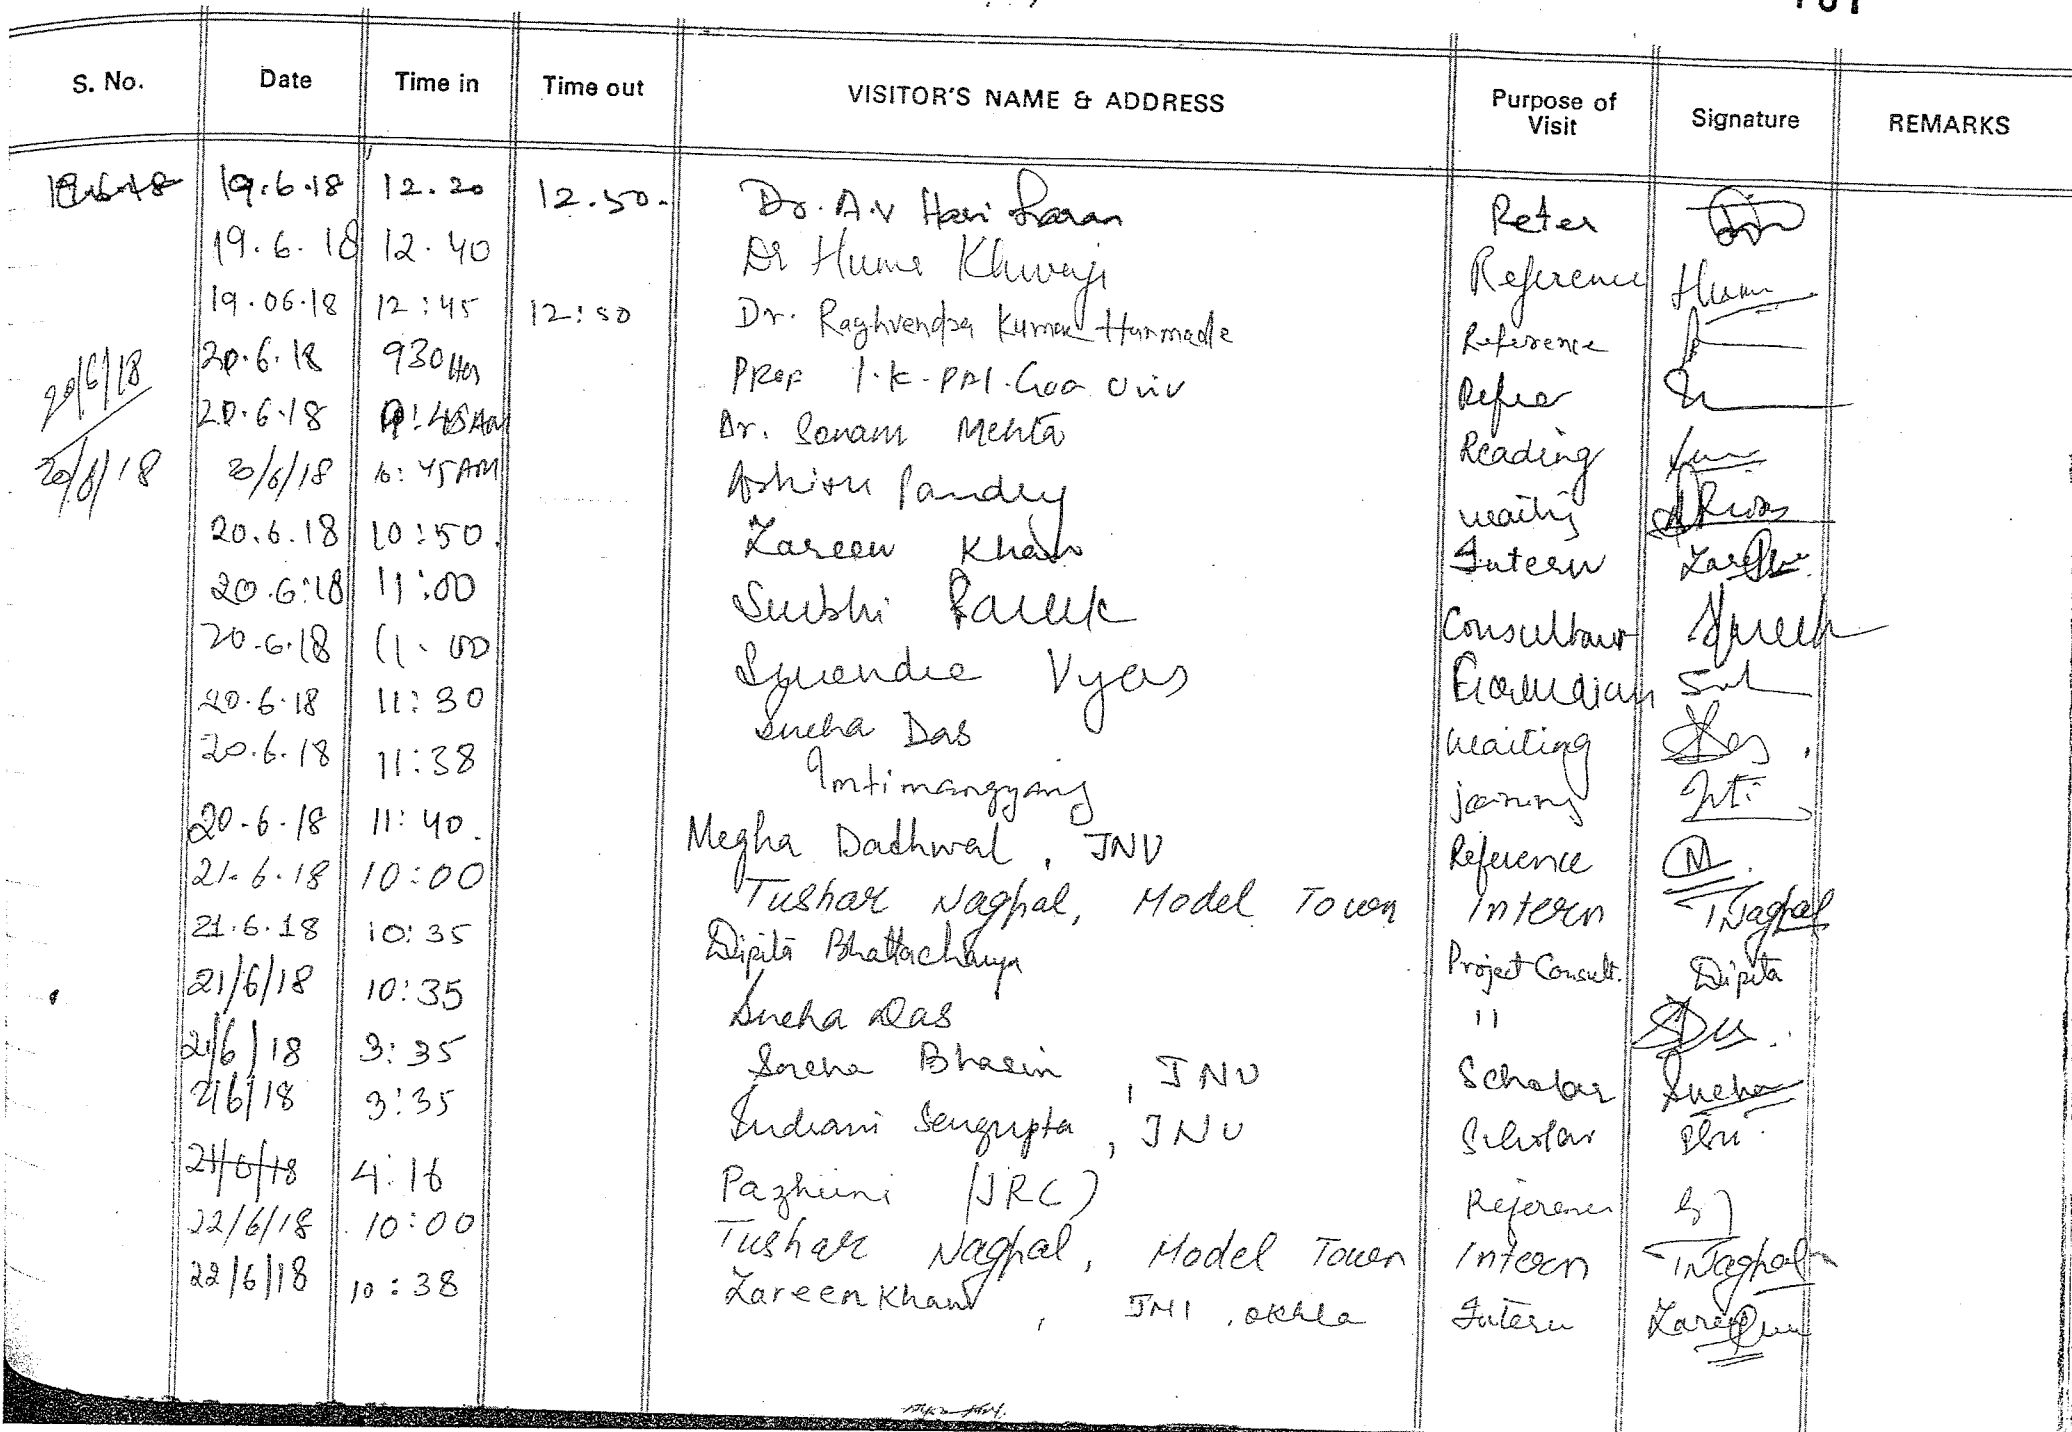 S. No. Date Time in Time out VISITOR'S NAME & ADDRESS Purpose of Visit Signature REMARKS
19.6.18 19.6.18 12.20 12.50. Dr. A.V Hari Saran Reter
19.6.18 12.40 Dr Huma Reference Huma
19.06.18 12:45 12:50 Dr. Kumar Reference
20/6/18 20.6.18 930 Hrs PROF I.K. PAI. Goa Univ Refer
20.6.18 9:45AM Dr. Sonam Mehta Reading
20/6/18 20/6/18 10:45AM Ashish Pandey waiting
20.6.18 10:50. Zareen Khan Intern
20.6.18 11:00 Surbhi Pareek Consultant Pareek
20.6.18 11.00 Vyas
20.6.18 11:30 Sneha Das waiting Das.
20.6.18 11:38 Imtimangyang joining Imti
20.6.18 11:40. Megha Dadhwal, JNU Reference M.
21.6.18 10:00 Tushar Nagpal, Model Town Intern TNagpal
21.6.18 10:35 Dipita Bhattacharya Project Consult. Dipita
21/6/18 10:35 Sneha Das "
21/6/18 3:35 Sneha Bhasin, JNU Scholar Sneha
21/6/18 3:35 Indrani Sengupta, JNU Scholar
21/6/18 4:16 (JRC) Reference
22/6/18 10:00 Tushar Nagpal, Model Town Intern TNagpal
22/6/18 10:38 Zareen Khan, JMI, okhla Intern Zareen